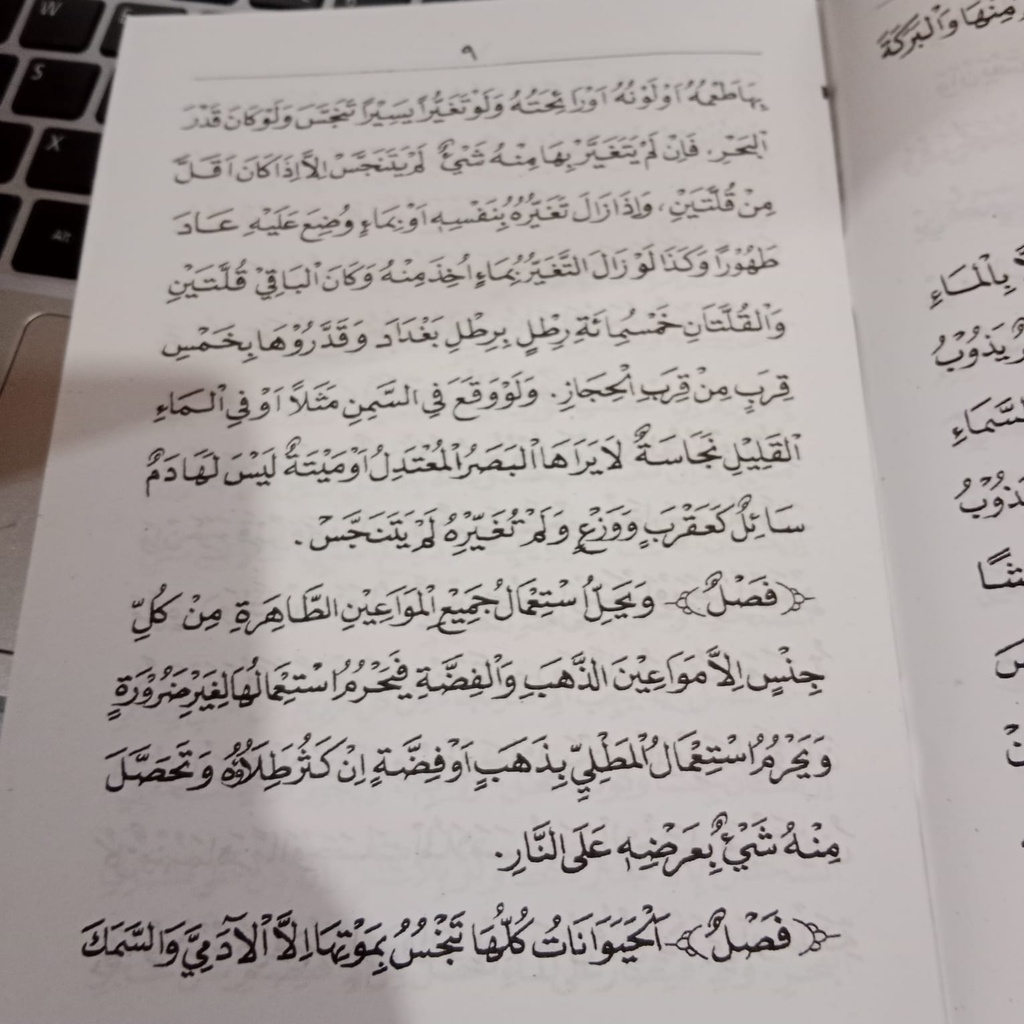 ٩
بِهَا طَعْمُهُ اَوْ لَوْنُهُ اَوْ رَائِحَتُهُ وَلَوْ تَغَيُّرًا يَسِيْرًا تَنَجَّسَ وَلَوْ كَانَ قَدْرَ
الْبَحْرِ. فَاِنْ لَمْ يَتَغَيَّرْ بِهَا مِنْهُ شَيْءٌ لَمْ يَتَنَجَّسْ اِلَّا اِذَا كَانَ اَقَلَّ
مِنْ قُلَّتَيْنِ، وَاِذَا زَالَ تَغَيُّرُهُ بِنَفْسِهِ اَوْ بِمَاءٍ وُضِعَ عَلَيْهِ عَادَ
طَهُوْرًا وَكَذَا لَوْ زَالَ التَّغَيُّرُ بِمَاءٍ اُخِذَ مِنْهُ وَكَانَ الْبَاقِيْ قُلَّتَيْنِ
وَالْقُلَّتَانِ خَمْسُمِائَةِ رِطْلٍ بِرِطْلِ بَغْدَادَ وَقَدَّرُوْهَا بِخَمْسِ
قِرَبٍ مِنْ قِرَبِ الْحِجَازِ. وَلَوْ وَقَعَ فِي السَّمِنِ مَثَلًا اَوْ فِي الْمَاءِ
الْقَلِيْلِ نَجَاسَةٌ لَا يَرَاهَا الْبَصَرُ الْمُعْتَدِلُ اَوْ مَيْتَةٌ لَيْسَ لَهَا دَمٌ
سَائِلٌ كَعَقْرَبٍ وَوَزَغٍ وَلَمْ تُغَيِّرْهُ لَمْ يَتَنَجَّسْ.
﴿فَصْلٌ﴾ وَيَحِلُّ اسْتِعْمَالُ جَمِيْعِ الْمَوَاعِيْنِ الطَّاهِرَةِ مِنْ كُلِّ
جِنْسٍ اِلَّا مَوَاعِيْنَ الذَّهَبِ وَالْفِضَّةِ فَيَحْرُمُ اسْتِعْمَالُهَا لِغَيْرِ ضَرُوْرَةٍ
وَيَحْرُمُ اسْتِعْمَالُ الْمَطْلِيِّ بِذَهَبٍ اَوْ فِضَّةٍ اِنْ كَثُرَ طِلَاؤُهُ وَتَحَصَّلَ
مِنْهُ شَيْءٌ بِعَرْضِهِ عَلَى النَّارِ.
﴿فَصْلٌ﴾ اَلْحَيَوَانَاتُ كُلُّهَا تَنْجُسُ بِمَوْتِهَا اِلَّا الْآدَمِيَّ وَالسَّمَكَ
مِنْهَا وَالْبَرَكَةَ
بِالْمَاءِ
يَذُوْبُ
W
S
X
Alt